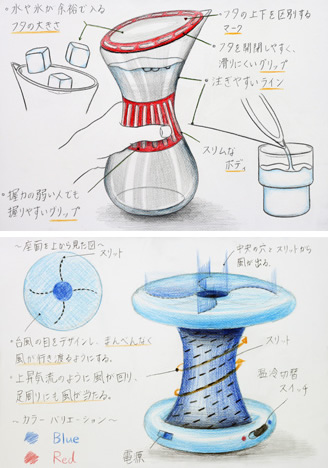 ・水や氷が余裕で入る
フタの大きさ
・フタの上下を区別する
マーク
・フタを開閉しやすく、
滑りにくいグリップ
・注ぎやすいライン
スリムな
ボディ
・握力の弱い人でも
握りやすいグリップ
〜座面を上から見た図〜
スリット
中央の穴とスリットから
風が出る。
・台風の目をデザインし、まんべんなく
風が行き渡るようにする。
・上昇気流のように風が回り、
足周りにも風が当たる。
スリット
温冷切替
スイッチ
〜カラーバリエーション〜
Blue
Red
電源